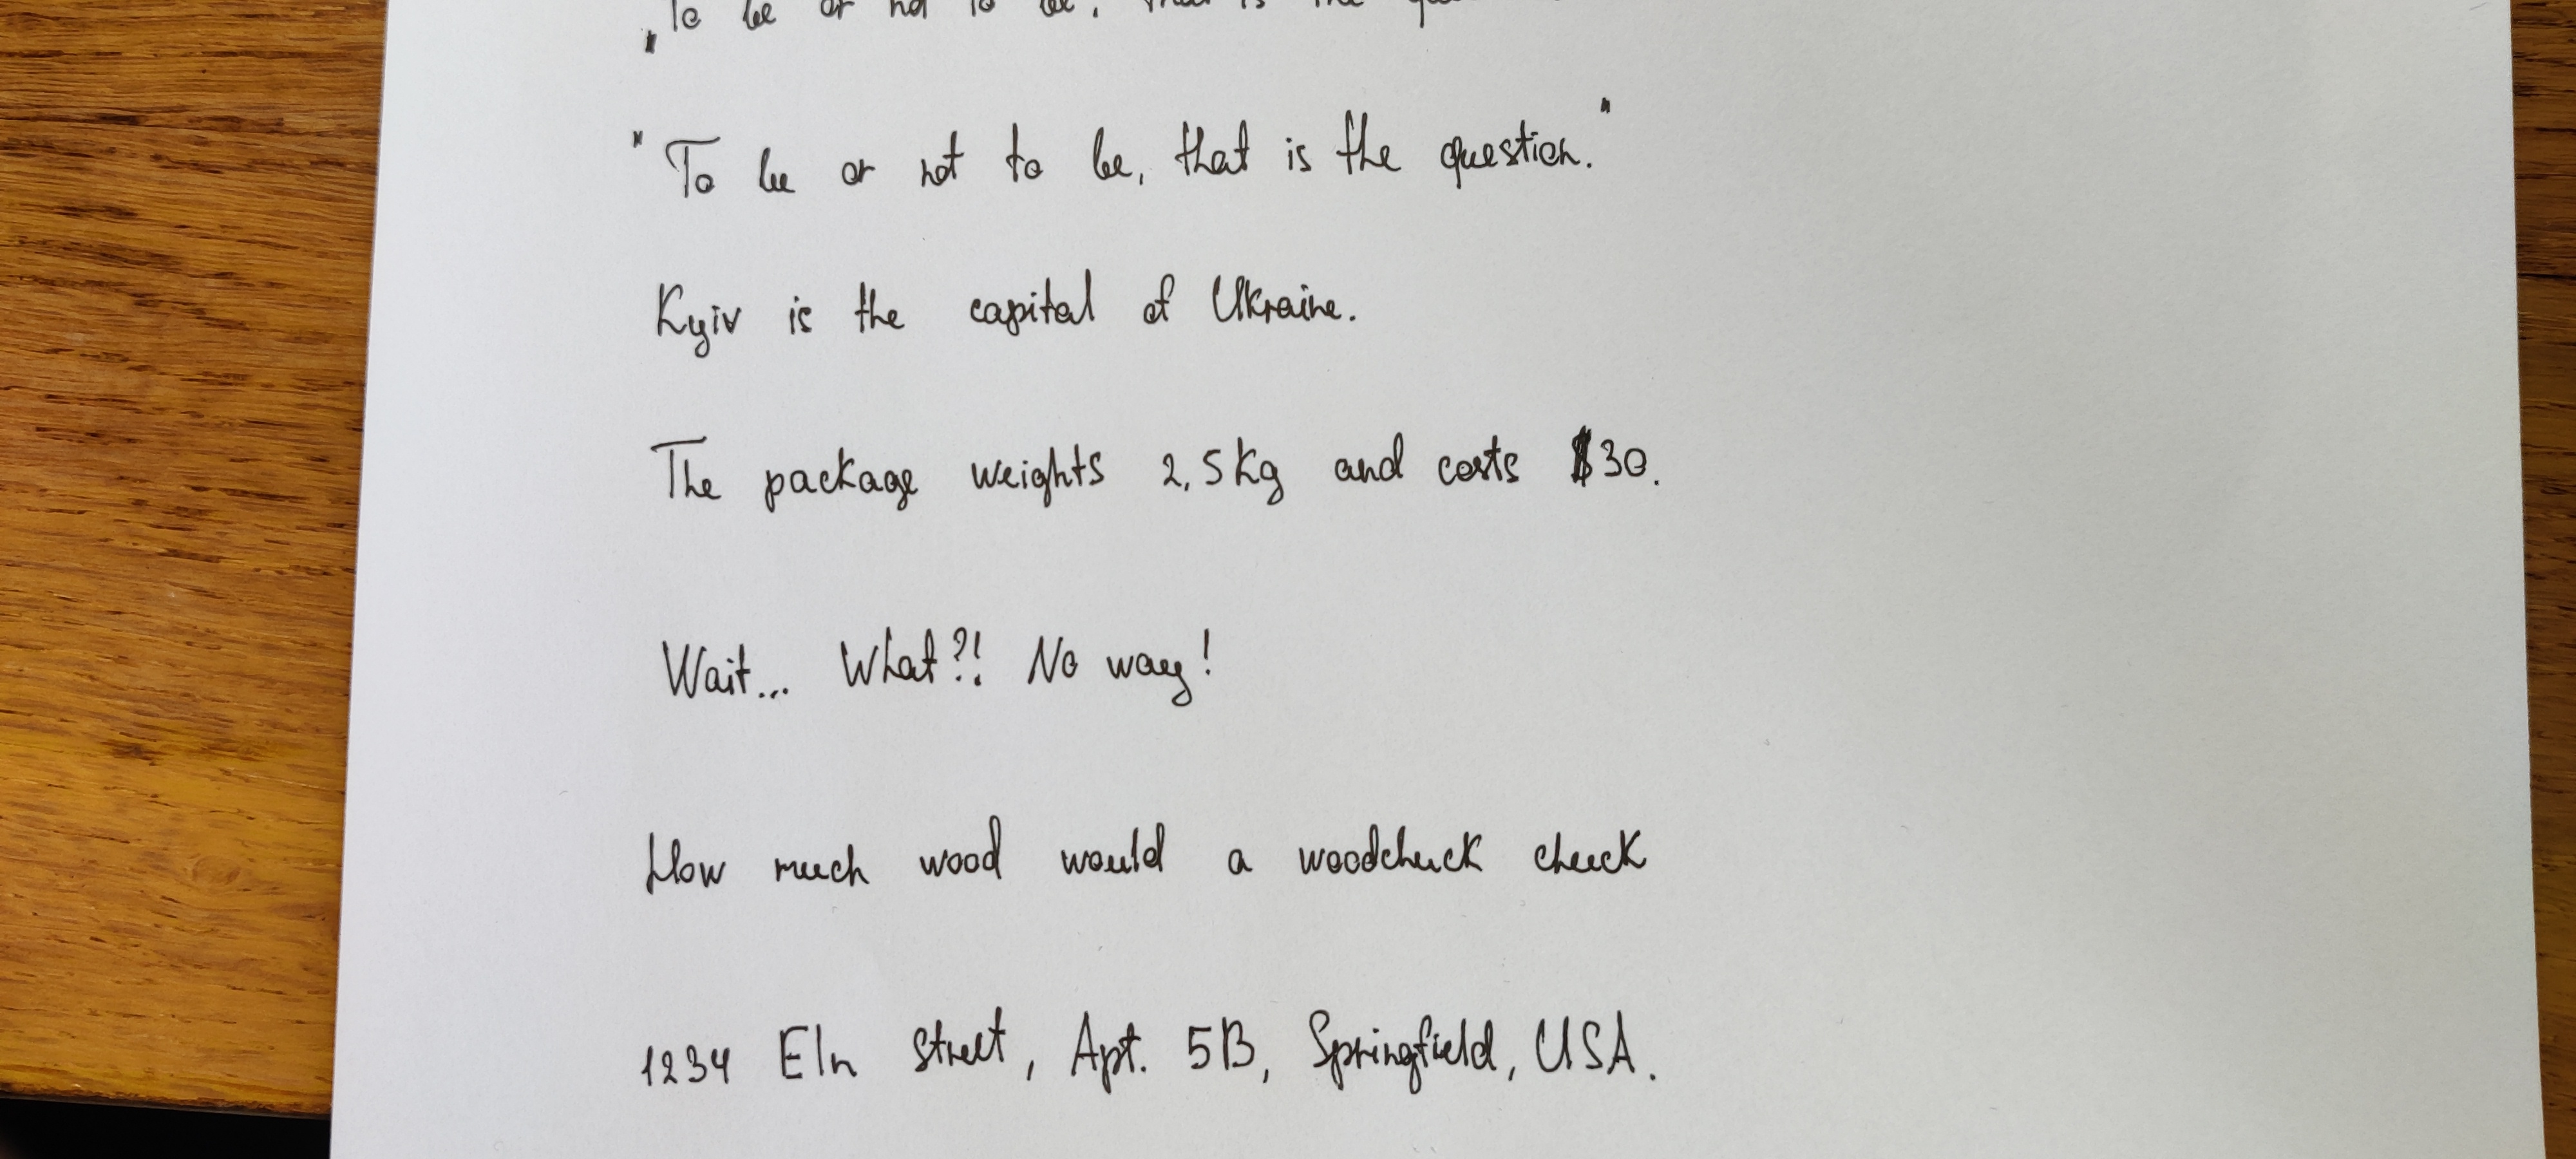 „To be or not to be, that is the
"To be or not to be, that is the question."
Kyiv is the capital of Ukraine.
The package weights 2,5kg and costs $30.
Wait... What?! No way!
How much wood would a woodchuck chuck
1234 Eln street, Apt. 5B, Springfield, USA.